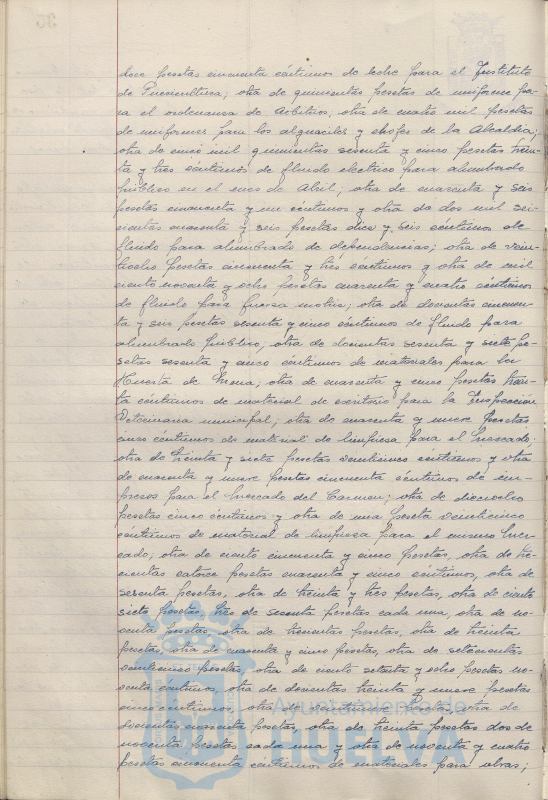 doce pesetas cincuenta céntimos de leche para el Instituto
de Puericultura; otra de quinientas pesetas de uniforme pa-
ra el ordenanza de Arbitrios; otra de cuatro mil pesetas
de uniformes para los alguaciles y chofer de la Alcaldía;
otra de cinco mil quinientas sesenta y cinco pesetas trein-
ta y tres céntimos de fluido electrico para alumbrado
público en el mes de Abril; otra de cuarenta y seis
pesetas cincuenta y un céntimos y otra de dos mil seis-
cientas cuarenta y seis pesetas diez y seis céntimos de
fluido para alumbrado de dependencias; otra de vein-
tiocho pesetas cincuenta y tres céntimos y otra de mil
ciento noventa y ocho pesetas cuarenta y cuatro céntimos
de fluido para fuerza motriz; otra de doscientas cincuen-
ta y seis pesetas sesenta y cinco céntimos de fluido para
alumbrado público; otra de doscientas sesenta y siete pe-
setas sesenta y cinco céntimos de materiales para la
Huerta de Mena; otra de cuarenta y cinco pesetas trein-
ta céntimos de material de escritorio para la Inspección
Veterinaria municipal; otra de cuarenta y nueve pesetas
cinco céntimos de material de limpieza para el mercado;
otra de treinta y siete pesetas veinticinco céntimos y otra
de cuarenta y nueve pesetas cincuenta céntimos de im-
presos para el Mercado del Carmen; otra de diecinueve
pesetas cinco céntimos y otra de una peseta veinticinco
céntimos de material de limpieza para el mismo Mer-
cado; otra de ciento cincuenta y cinco pesetas, otra de tres-
cientas catorce pesetas cuarenta y cinco céntimos, otra de
sesenta pesetas, otra de treinta y tres pesetas, otra de ciento
siete pesetas, tres de sesenta pesetas cada una, otra de no-
venta pesetas, otra de trescientas pesetas, otra de treinta
pesetas, otra de cuarenta y cinco pesetas, otra de setecientas
veinticinco pesetas, otra de ciento setenta y ocho pesetas no-
venta céntimos, otra de doscientas treinta y nueve pesetas
cinco céntimos, otra de veinticinco pesetas, otra de
doscientas cuarenta pesetas, otra de treinta pesetas, dos de
noventa pesetas cada una y otra de noventa y cuatro
pesetas cincuenta céntimos de materiales para obras;
Ayuntamiento de
HUELVA